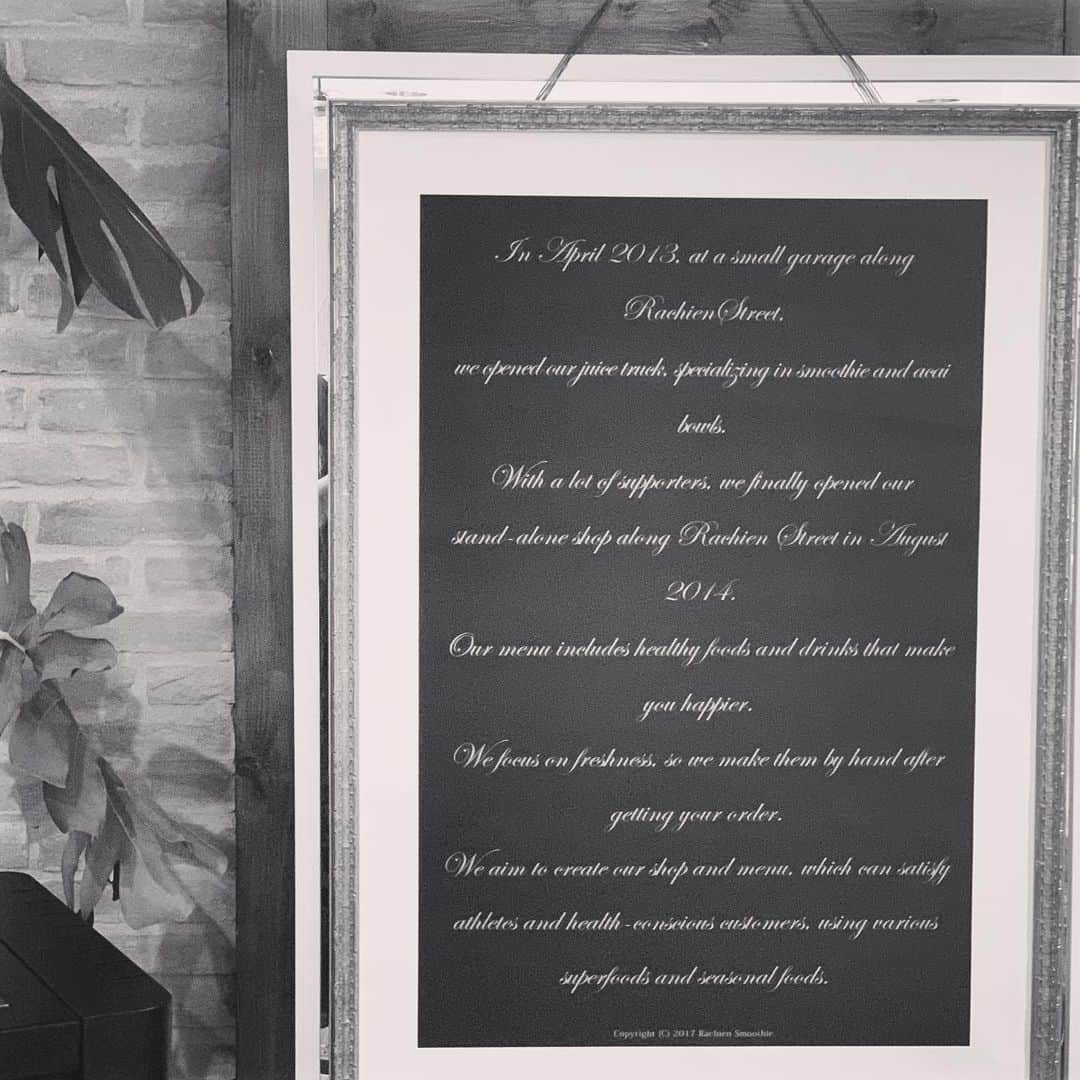 In April 2013, at a small garage along
Rachien Street,
we opened our juice truck, specializing in smoothie and acai
bowls.
With a lot of supporters, we finally opened our
stand-alone shop along Rachien Street in August
2014.
Our menu includes healthy foods and drinks that make
you happier.
We focus on freshness, so we make them by hand after
getting your order.
We aim to create our shop and menu, which can satisfy
athletes and health-conscious customers, using various
superfoods and seasonal foods.
Copyright (C) 2017 Rachien Smoothie